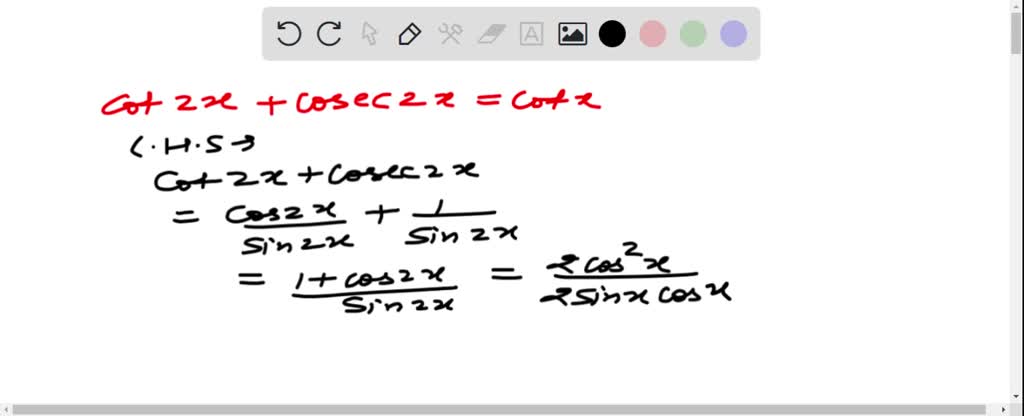 cot 2x + cosec 2x = cot x
L.H.S →
cot 2x + cosec 2x
= cos2x/sin2x + 1/sin2x
= 1 + cos2x/sin2x = 2cos²x/2sinx cosx